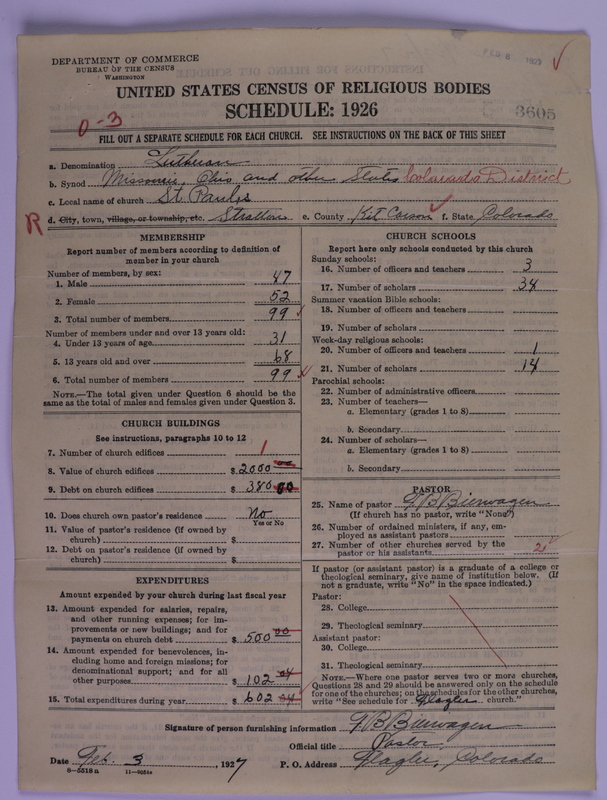 DEPARTMENT OF COMMERCE
BUREAU OF THE CENSUS
WASHINGTON
UNITED STATES CENSUS OF RELIGIOUS BODIES
SCHEDULE: 1926
3605
0-3
FILL OUT A SEPARATE SCHEDULE FOR EACH CHURCH. SEE INSTRUCTIONS ON THE BACK OF THIS SHEET
a. Denomination Lutheran
b. Synod Missouri, Ohio and other States Colorado District
c. Local name of church St. Paul's
R d. City, town, village, or township, etc. Stratton e. County Kit Carson f. State Colorado
MEMBERSHIP
Report number of members according to definition of
member in your church
Number of members, by sex:
1. Male 47
2. Female 52
3. Total number of members 99
Number of members under and over 13 years old:
4. Under 13 years of age 31
5. 13 years old and over 68
6. Total number of members 99
NOTE.—The total given under Question 6 should be the
same as the total of males and females given under Question 3.
CHURCH BUILDINGS
See instructions, paragraphs 10 to 12
7. Number of church edifices 1
8. Value of church edifices $ 2000 00
9. Debt on church edifices $ 380 00
10. Does church own pastor's residence No
Yes or No
11. Value of pastor's residence (if owned by
church) $
12. Debt on pastor's residence (if owned by
church) $
EXPENDITURES
Amount expended by your church during last fiscal year
13. Amount expended for salaries, repairs,
and other running expenses; for im-
provements or new buildings; and for
payments on church debt $ 500 00
14. Amount expended for benevolences, in-
cluding home and foreign missions; for
denominational support; and for all
other purposes $ 102 04
15. Total expenditures during year $ 602 04
CHURCH SCHOOLS
Report here only schools conducted by this church
Sunday schools:
16. Number of officers and teachers 3
17. Number of scholars 34
Summer vacation Bible schools:
18. Number of officers and teachers
19. Number of scholars
Week-day religious schools:
20. Number of officers and teachers 1
21. Number of scholars 14
Parochial schools:
22. Number of administrative officers
23. Number of teachers—
a. Elementary (grades 1 to 8)
b. Secondary
24. Number of scholars—
a. Elementary (grades 1 to 8)
b. Secondary
PASTOR
25. Name of pastor Bierwagen
(If church has no pastor, write "None")
26. Number of ordained ministers, if any, em-
ployed as assistant pastors
27. Number of other churches served by the
pastor or his assistants 2
If pastor (or assistant pastor) is a graduate of a college or
theological seminary, give name of institution below. (If
not a graduate, write "No" in the space indicated.)
Pastor:
28. College
29. Theological seminary
Assistant pastor:
30. College
31. Theological seminary
NOTE.—Where one pastor serves two or more churches,
Questions 28 and 29 should be answered only on the schedule
for one of the churches; on the schedules for the other churches,
write "See schedule for Flagler church."
Signature of person furnishing information Bierwagen
Official title Pastor
Date Feb. 3, 1927 P. O. Address Flagler, Colorado
8-5518a 11-9051a